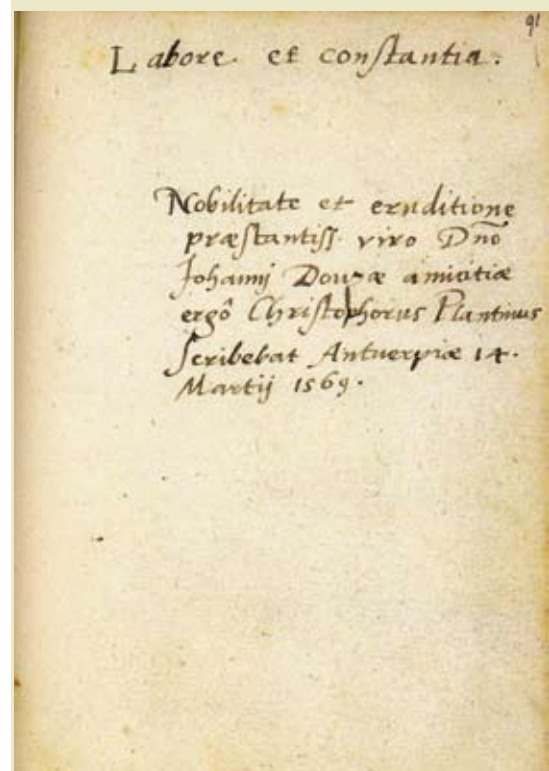 91
Labore et constantia.
Nobilitate et eruditione
præstantiss. viro Dño
Johanni Douzæ amicitiæ
ergô Christophorus Plantinus
scribebat Antuerpiæ 14.
Martij 1569.